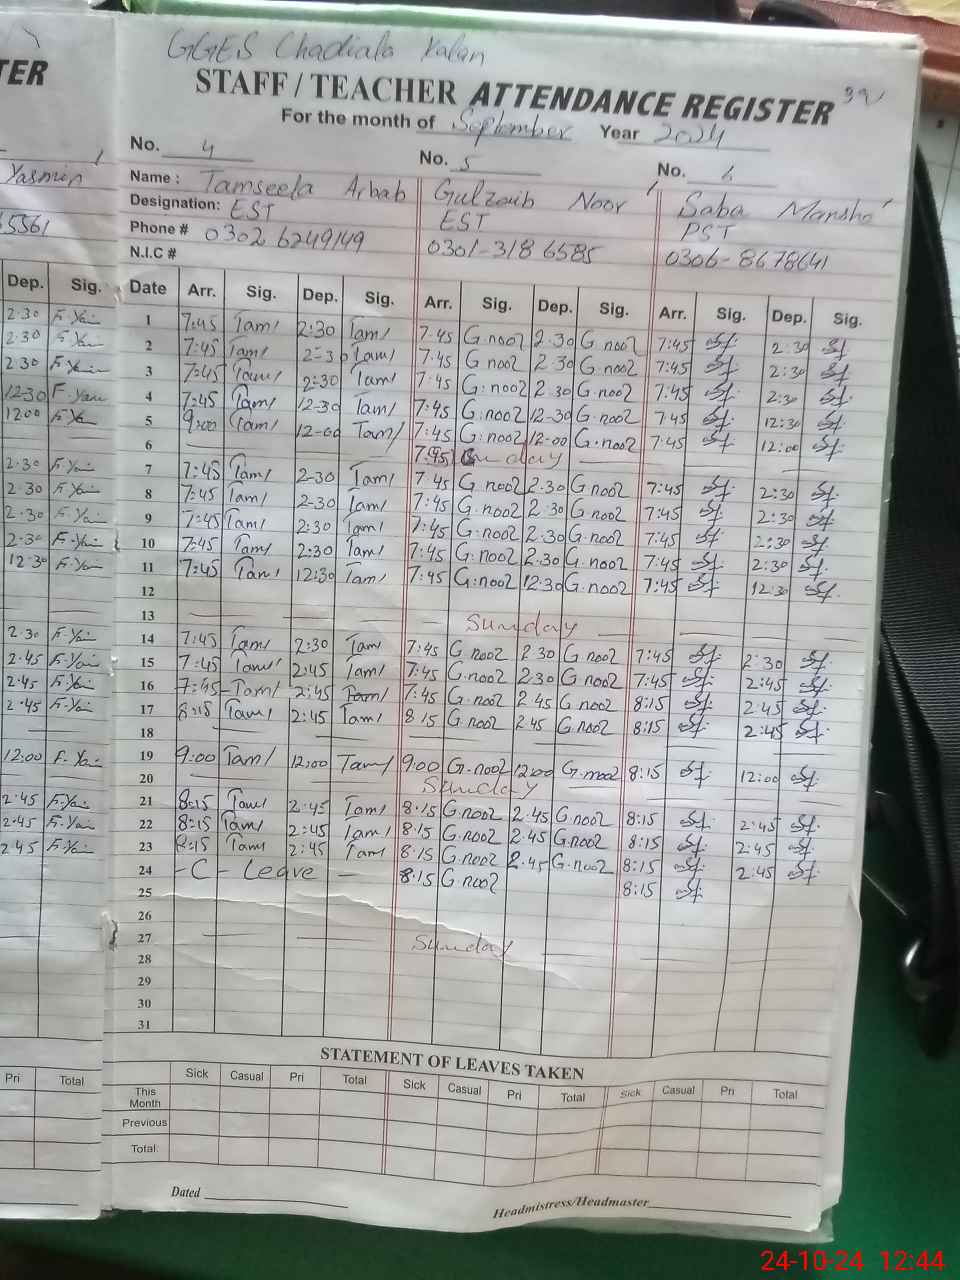 GGES Chadiala Kalan
TER STAFF / TEACHER ATTENDANCE REGISTER 39
For the month of September Year 2024
No. 4 No. 5 No. 6
Yasmin Name : Tamseela Arbab Gulzaib Noor Saba
Designation: EST EST PST
5561 Phone # 0302 6249149 0301-318 6585 0306-8678641
N.I.C #
Dep. Sig. Date Arr. Sig. Dep. Sig. Arr. Sig. Dep. Sig. Arr. Sig. Dep. Sig.
2.30 1 7:45 Tam 2:30 Tam 7.45 G.noor 2.30 G.noor 7:45 2:30
2.30 2 7:45 Tam 2:30 Tam 7.45 G.noor 2.30 G.noor 7:45 2:30
2.30 3 7:45 Tam 2:30 Tam 7.45 G.noor 2.30 G.noor 7:45 2:30
12.30 4 7:45 Tam 12-30 Tam 7.45 G.noor 12-30 G.noor 7.45 12:30
12.00 5 9:00 Tam 12-00 Tam 7.45 G.noor 12-00 G.noor 7:45 12:00
6 7.45 Sunday
2.30 7 7:45 Tam 2-30 Tam 7.45 G.noor 2.30 G.noor 7:45 2:30
2.30 8 7:45 Tam 2-30 Tam 7.45 G.noor 2.30 G.noor 7:45 2:30
2.30 9 7:45 Tam 2:30 Tam 7.45 G.noor 2.30 G.noor 7:45 2:30
2.30 10 7:45 Tam 2:30 Tam 7.45 G.noor 2.30 G.noor 7:45 2:30
12.30 11 7:45 Tam 12:30 Tam 7.45 G.noor 12.30 G.noor 7:45 12:30
12
13 Sunday
2.30 14 7:45 Tam 2:30 Tam 7.45 G.noor 2.30 G.noor 7:45 2:30
2.45 15 7:45 Tam 2:45 Tam 7.45 G.noor 2.30 G.noor 7:45 2:45
2.45 16 7:45 Tam 2:45 Tam 7.45 G.noor 2.45 G.noor 8:15 2:45
2.45 17 8:15 Tam 2:45 Tam 8.15 G.noor 2.45 G.noor 8:15 2:45
18
12:00 19 9:00 Tam 12:00 Tam 9:00 G.noor 12:00 G.noor 8:15 12:00
20 Sunday
2.45 21 8:15 Tam 2:45 Tam 8.15 G.noor 2.45 G.noor 8:15 2:45
2.45 22 8:15 Tam 2:45 Tam 8.15 G.noor 2.45 G.noor 8:15 2:45
2.45 23 8:15 Tam 2:45 Tam 8.15 G.noor 2.45 G.noor 8:15 2:45
24 -C- Leave - 8.15 G.noor 8:15
25
26
27 Sunday
28
29
30
31
STATEMENT OF LEAVES TAKEN
Pri Total Sick Casual Pri Total Sick Casual Pri Total Sick Casual Pri Total
This Month
Previous
Total
Dated Headmistress/Headmaster
24-10-24 12:44